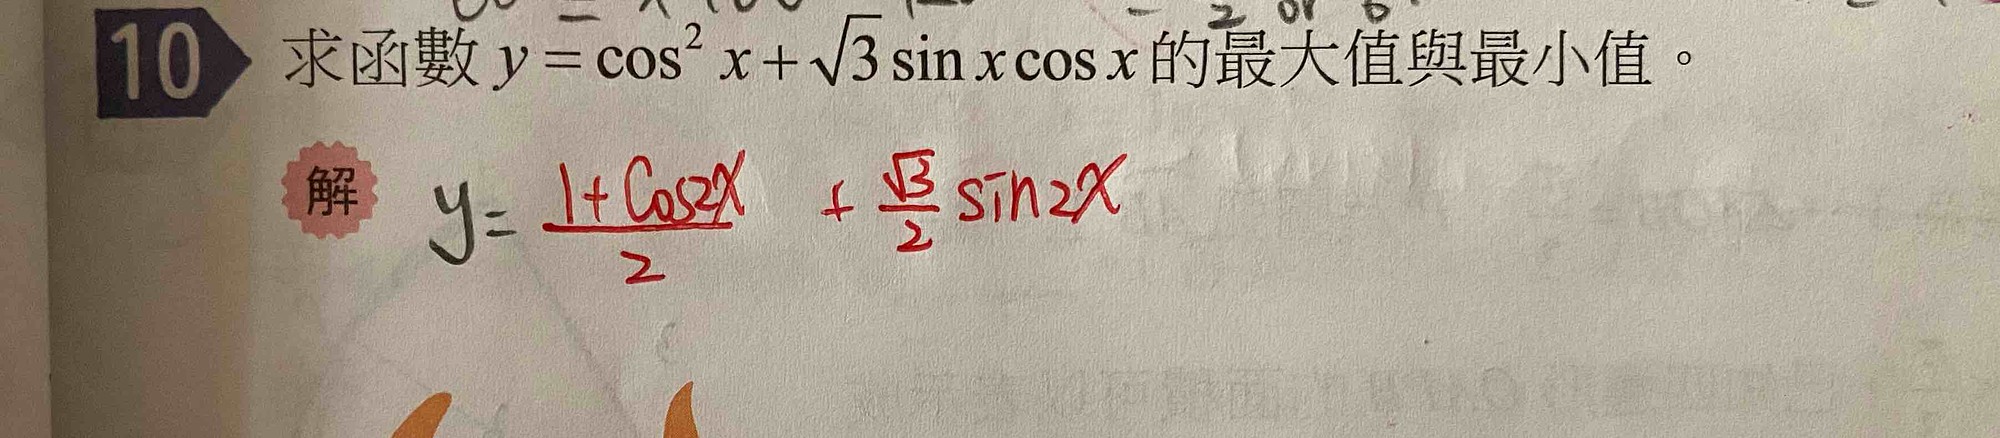 10 求函數 y = cos² x + √3 sin x cos x 的最大值與最小值。
解 y = (1 + cos2x)/2 + √3/2 sin2x